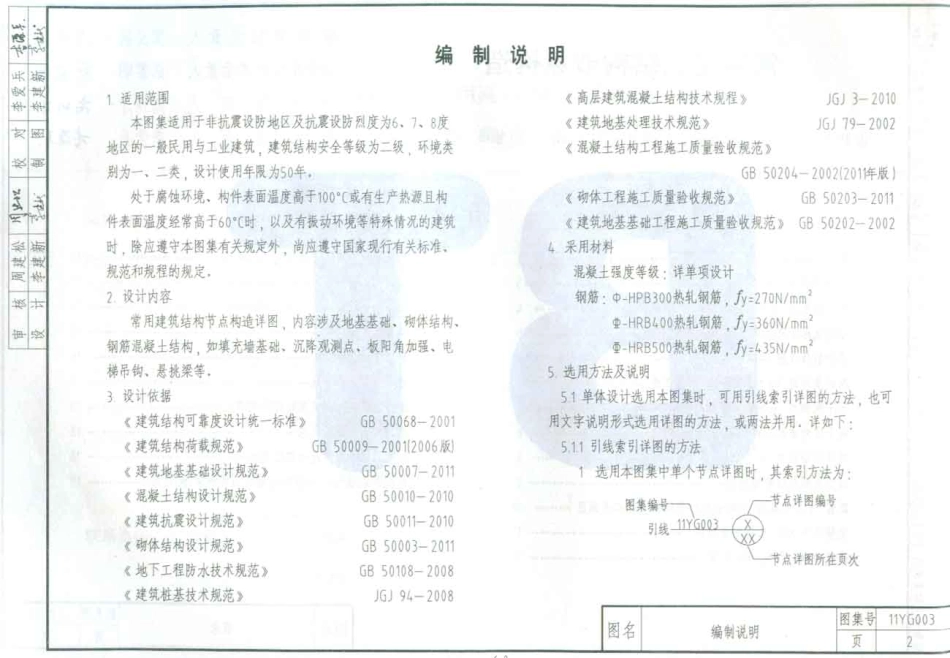 编制说明
1. 适用范围
本图集适用于非抗震设防地区及抗震设防烈度为6、7、8度
地区的一般民用与工业建筑，建筑结构安全等级为二级，环境类
别为一、二类，设计使用年限为50年。
处于腐蚀环境、构件表面温度高于100°C或有生产热源且构
件表面温度经常高于60°C时，以及有振动环境等特殊情况的建筑
时，除应遵守本图集有关规定外，尚应遵守国家现行有关标准、
规范和规程的规定。
2. 设计内容
常用建筑结构节点构造详图，内容涉及地基基础、砌体结构、
钢筋混凝土结构，如填充墙基础、沉降观测点、板阳角加强、电
梯吊钩、悬挑梁等。
3. 设计依据
《建筑结构可靠度设计统一标准》 GB 50068—2001
《建筑结构荷载规范》 GB 50009—2001(2006版)
《建筑地基基础设计规范》 GB 50007—2011
《混凝土结构设计规范》 GB 50010—2010
《建筑抗震设计规范》 GB 50011—2010
《砌体结构设计规范》 GB 50003—2011
《地下工程防水技术规范》 GB 50108—2008
《建筑桩基技术规范》 JGJ 94—2008
《高层建筑混凝土结构技术规程》 JGJ 3—2010
《建筑地基处理技术规范》 JGJ 79—2002
《混凝土结构工程施工质量验收规范》
GB 50204—2002(2011年版)
《砌体工程施工质量验收规范》 GB 50203—2011
《建筑地基基础工程施工质量验收规范》 GB 50202—2002
4. 采用材料
混凝土强度等级：详单项设计
钢筋：Φ-HPB300热轧钢筋，fy=270N/mm²
Φ-HRB400热轧钢筋，fy=360N/mm²
Φ-HRB500热轧钢筋，fy=435N/mm²
5. 选用方法及说明
5.1 单体设计选用本图集时，可用引线索引详图的方法，也可
用文字说明形式选用详图的方法，或两法并用．详如下：
5.1.1 引线索引详图的方法
1 选用本图集中单个节点详图时，其索引方法为：
图集编号
节点详图编号
引线
11YG003
X
XX
节点详图所在页次
图名
编制说明
图集号 11YG003
页 2
审核 周建松
校对 李爱兵
设计 李建新
制图 李建新